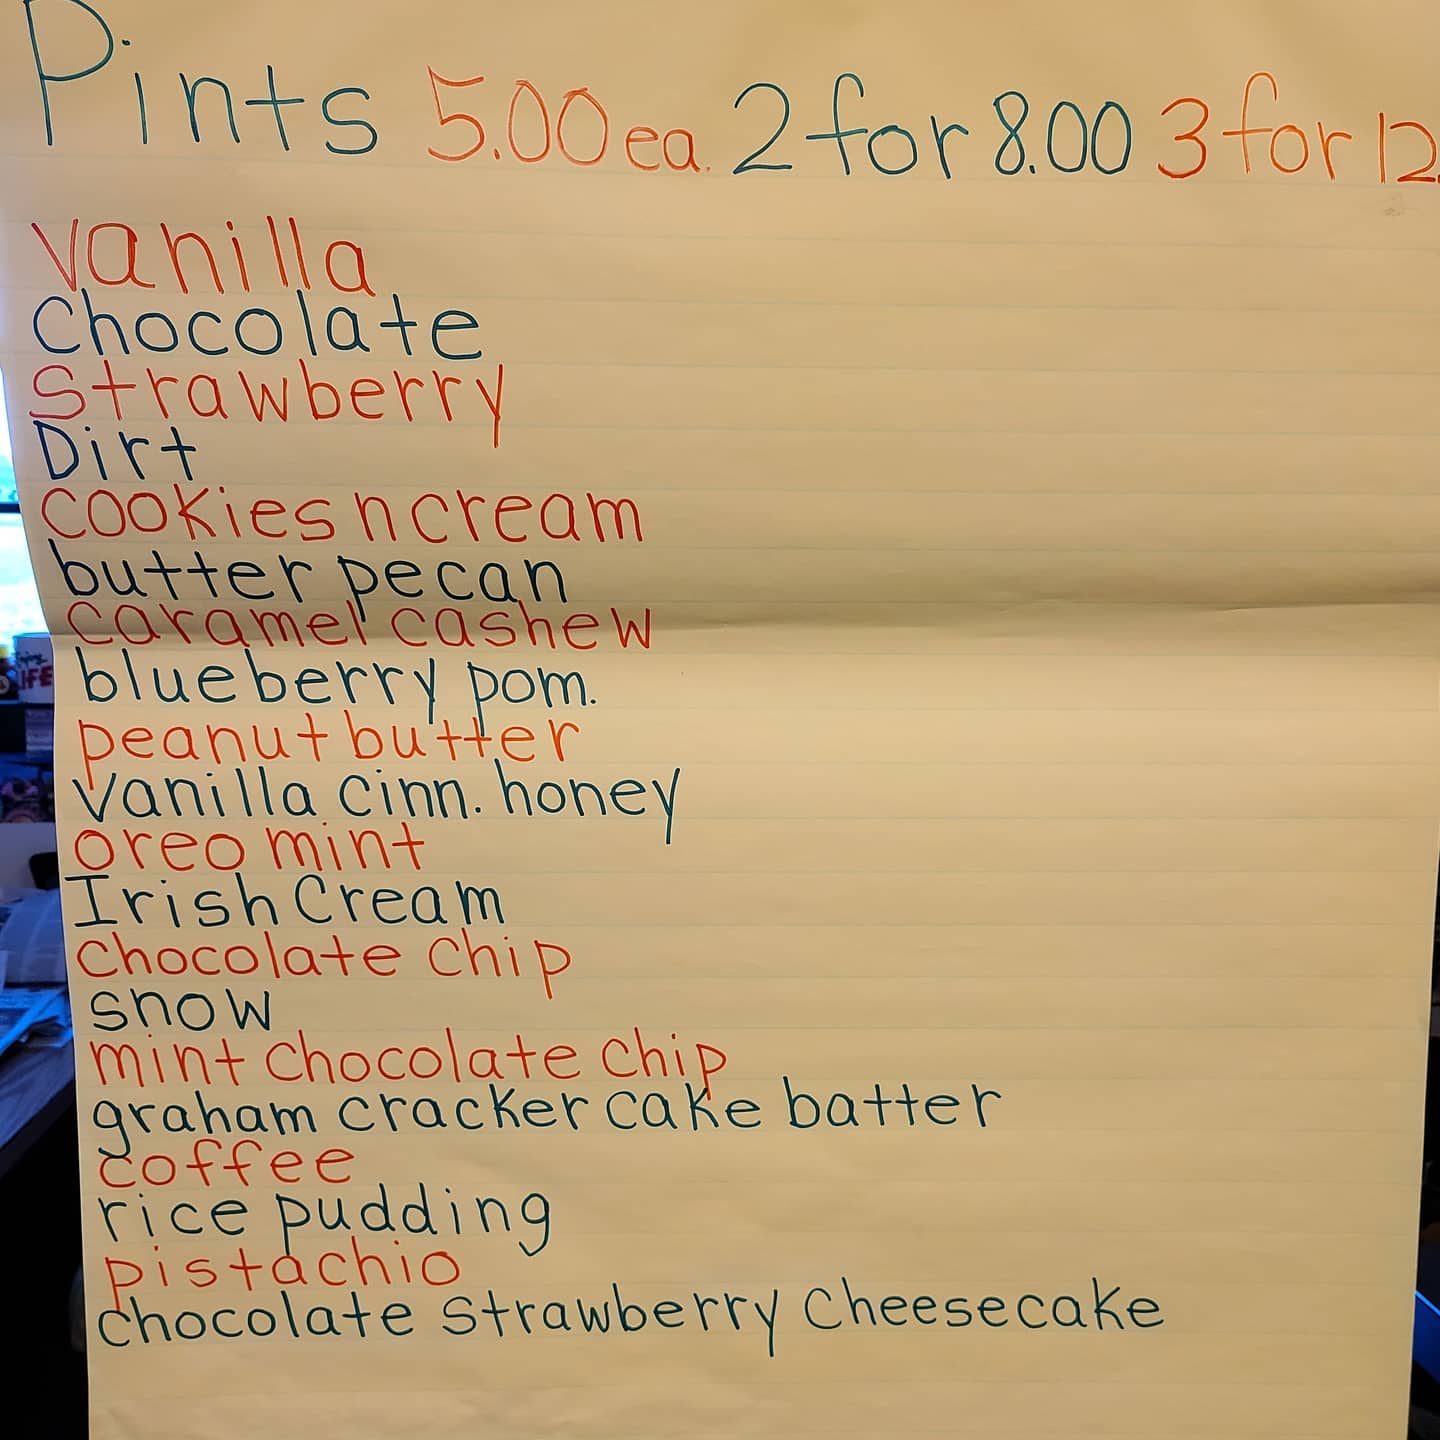 Pints 5.00 ea. 2 for 8.00 3 for 12.
vanilla
Chocolate
Strawberry
Dirt
cookies n cream
butter pecan
caramel cashew
blueberry pom.
peanut butter
vanilla cinn. honey
oreo mint
Irish Cream
Chocolate chip
snow
mint chocolate chip
graham cracker cake batter
coffee
rice pudding
pistachio
chocolate strawberry cheesecake
LIFE